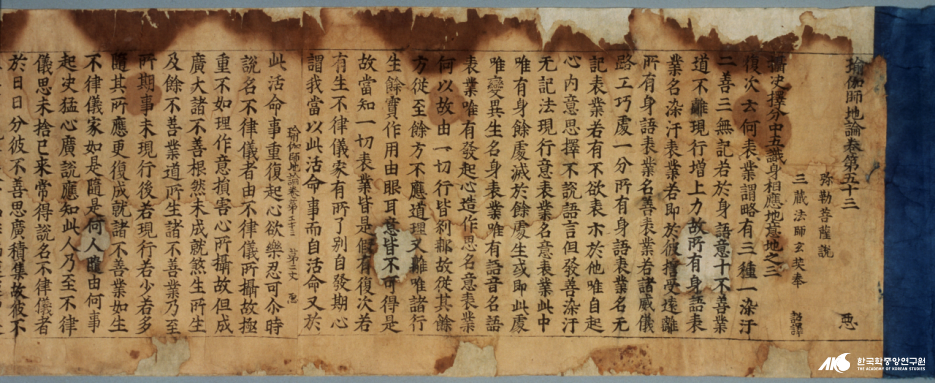 瑜伽師地論卷第五十三 惡
弥勒菩薩說
三藏法師玄奘奉 詔譯
攝决擇分中五識身相應地意地之三
復次云何表業謂略有三種一染汙
二善三無記若於身語意十不善業
道不離現行增上力故所有身語表
業名染汙表業若即於彼誓受遠離
所有身語表業名善表業若諸威儀
路工巧處一分所有身語表業名无
記表業若有不欲表示於他唯自起
心內意思擇不說語言但發善染汙
无記法現行意表業名意表業此中
唯有身餘處滅於餘處生或即此處
唯變異生名身表業唯有語音名語
表業唯有發起心造作思名意表業
何以故由一切行皆刹郍故從其餘
方徙至餘方不應道理又離唯諸行
生餘實作用由眼耳意皆不可得是
故當知一切表業皆是假有復次若
有生不律儀家有所了別自發期心
謂我當以此活命事而自活命又於
瑜伽師地論卷第五十三 第二丈
此活命事重復起心欲樂忍可尒時
說名不律儀者由不律儀所攝故極
重不如理作意損害心所攝故但成
廣大諸不善根然未成就煞生所生
及餘不善業道所生諸不善業乃至
所期事未現行後若現行若少若多
隨其所應更復成就諸不善業如生
不律儀家如是隨是何人隨由何事
起决猛心廣說應知此人乃至不律
儀思未捨已來常得說名不律儀者
於日日分彼不善思廣積集故彼不
AKS 한국학중앙연구원
THE ACADEMY OF KOREAN STUDIES